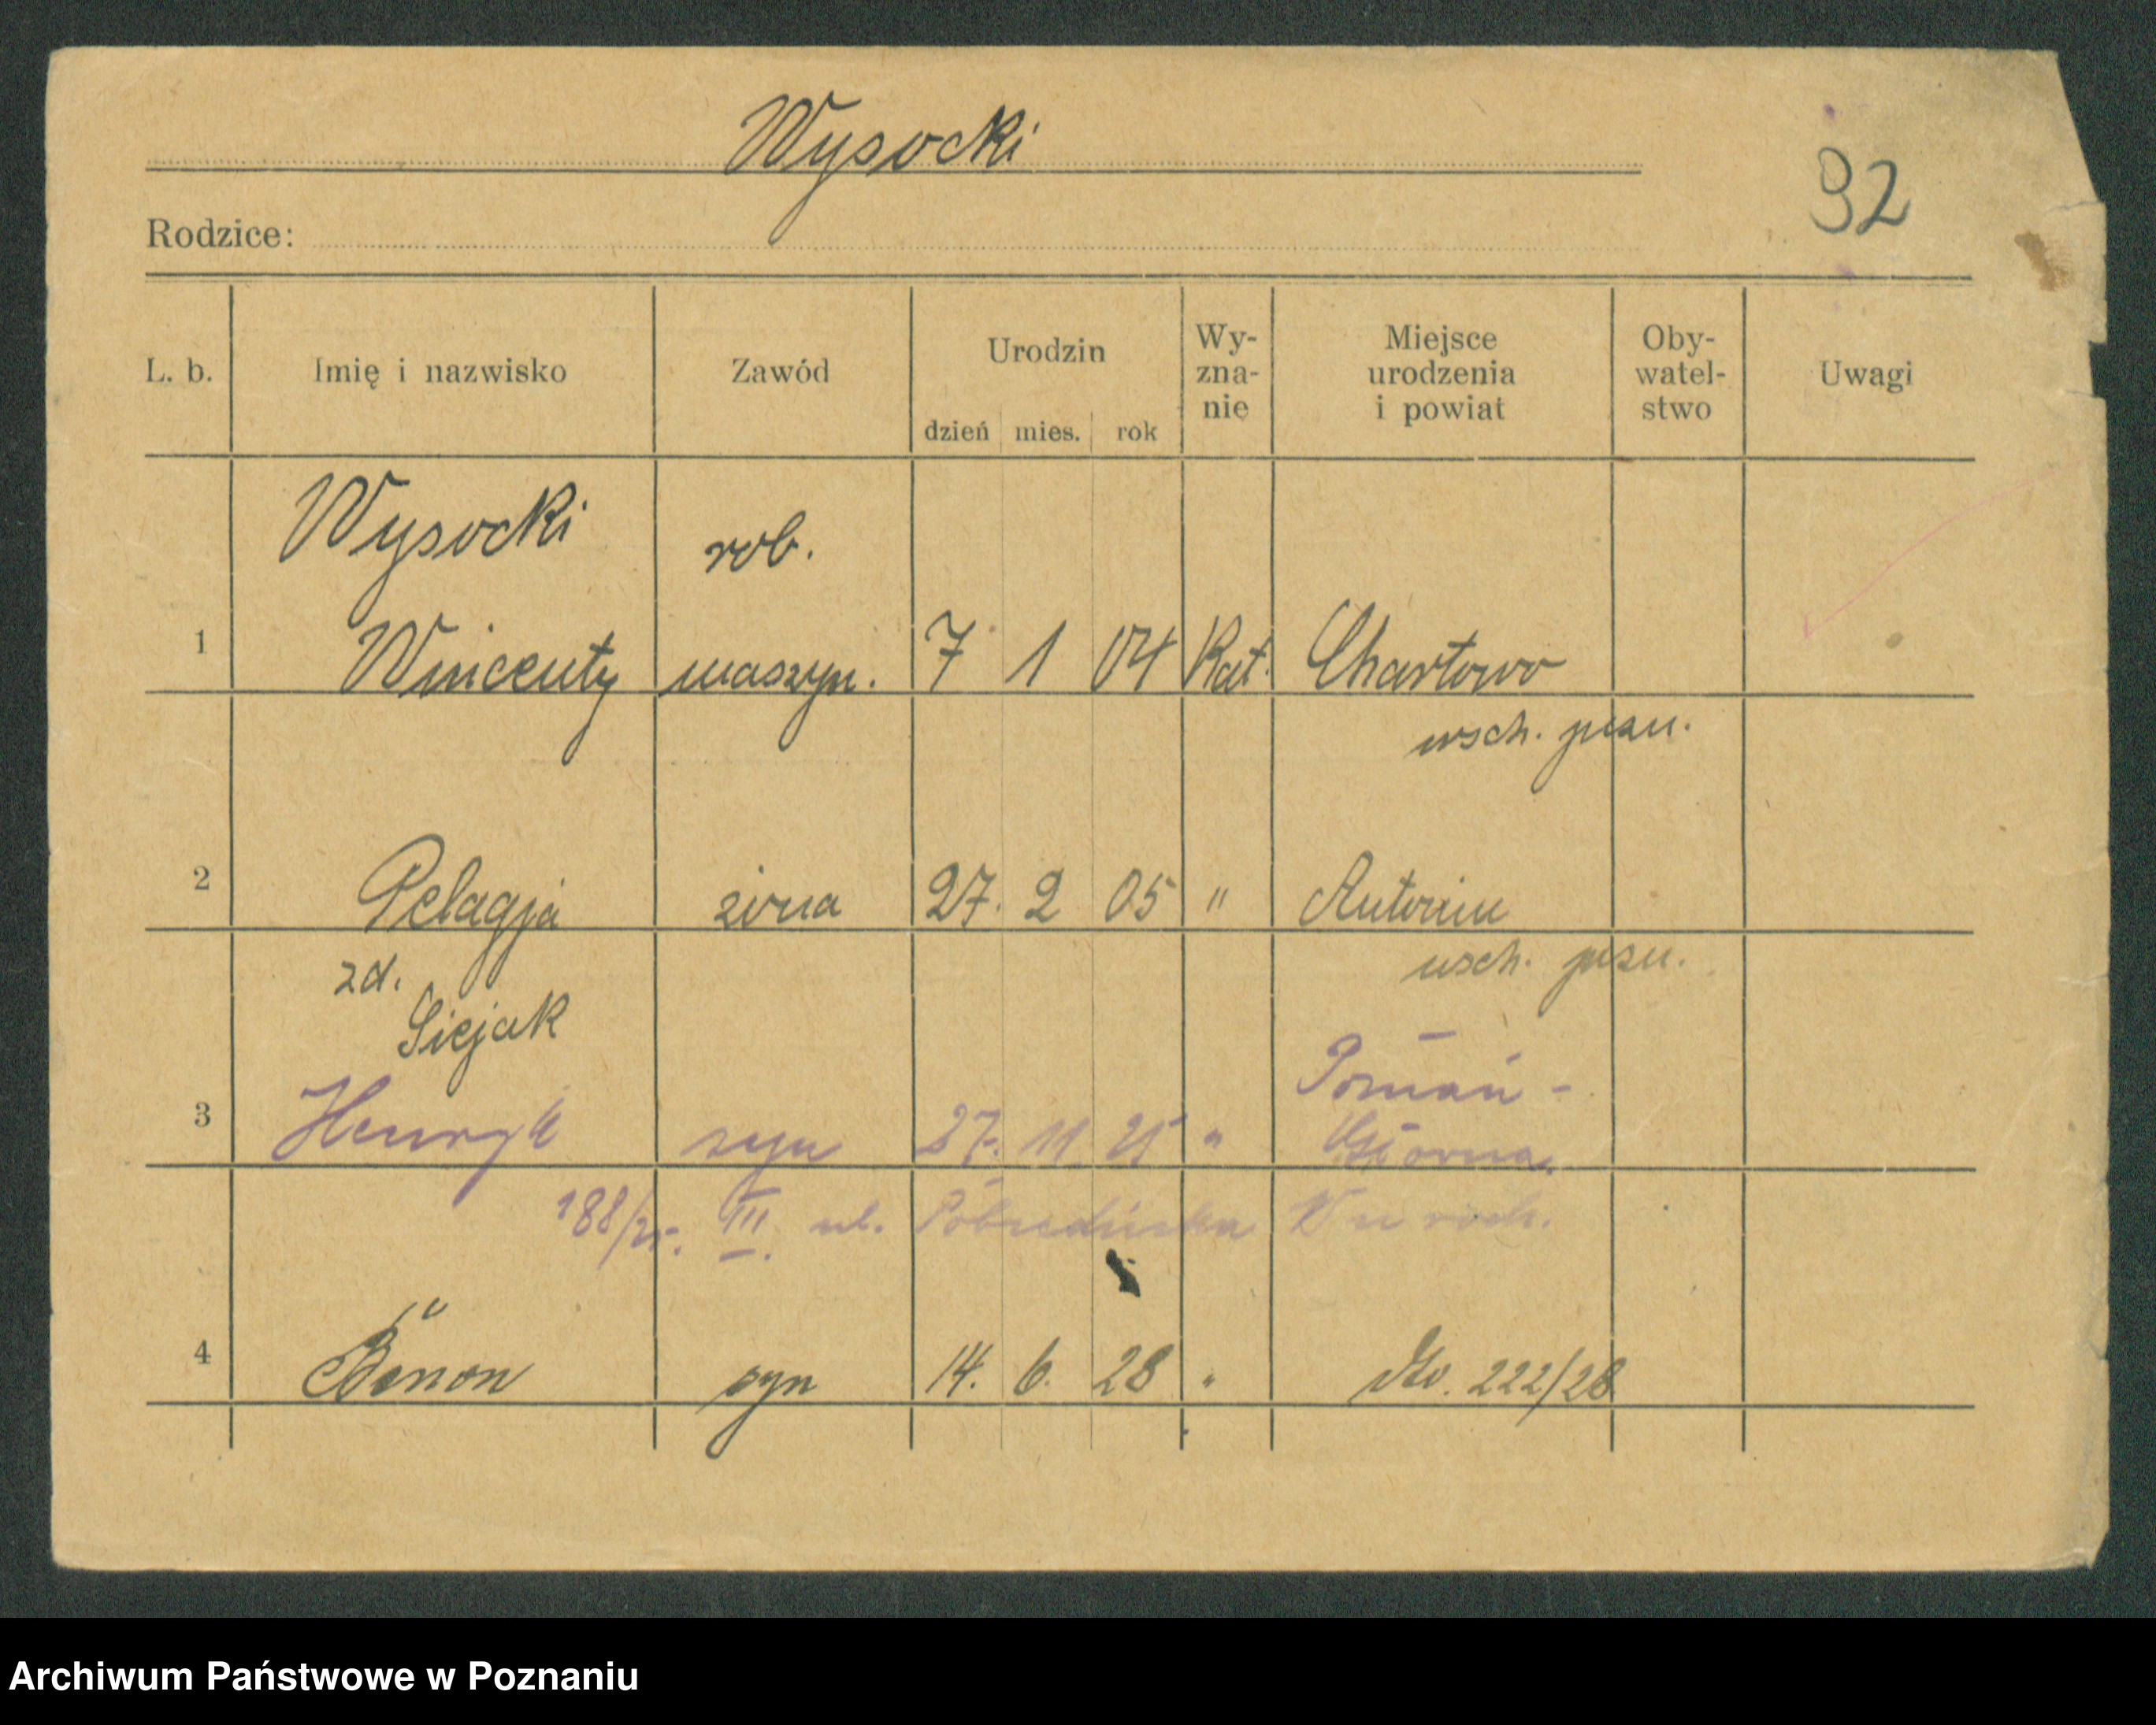 Wysocki
92
Rodzice:
L. b.
Imię i nazwisko
Zawód
Urodzin
dzień mies. rok
Wy-
zna-
nie
Miejsce
urodzenia
i powiat
Oby-
watel-
stwo
Uwagi
Wysocki rob.
1 Wincenty maszyn. 7 1 04 Kat. Chartowo
wsch. pozn.
2 Pelagja żona 27. 2 05 " Antonin
zd. wsch. pozn.
Siejak
Poznań -
3 Henryk syn 27. 11 25 " Główna
188/25. III ul.
"
4 Benon syn 14. 6. 28 " 222/28
Archiwum Państwowe w Poznaniu